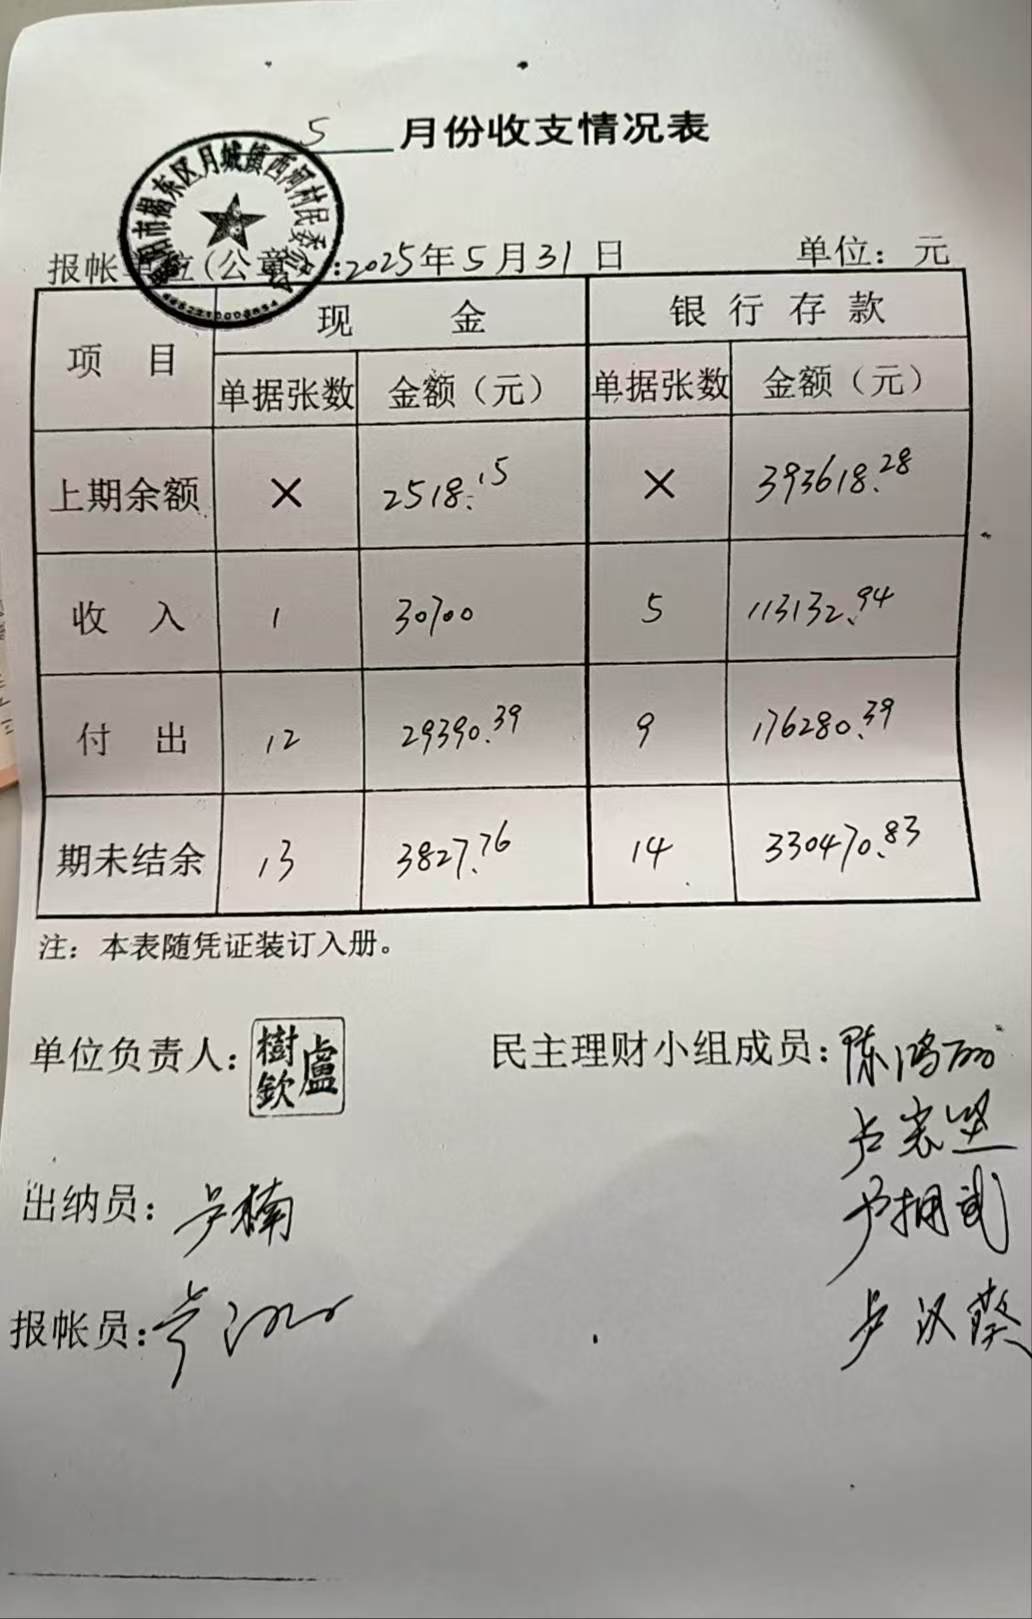 5 月份收支情况表
揭阳市揭东区月城镇西河村民委员会
报帐单位(公章):2025年5月31日 单位:元
项 目 现 金 银行存款
单据张数 金额(元) 单据张数 金额(元)
上期余额 × 2518.15 × 393618.28
收 入 1 30700 5 113132.94
付 出 12 29390.39 9 176280.39
期未结余 13 3827.76 14 330470.83
注:本表随凭证装订入册。
单位负责人:盧樹欽 民主理财小组成员:陈鸿
卢宏坚
卢拥武
出纳员:卢楠
卢汉葵
报帐员:卢